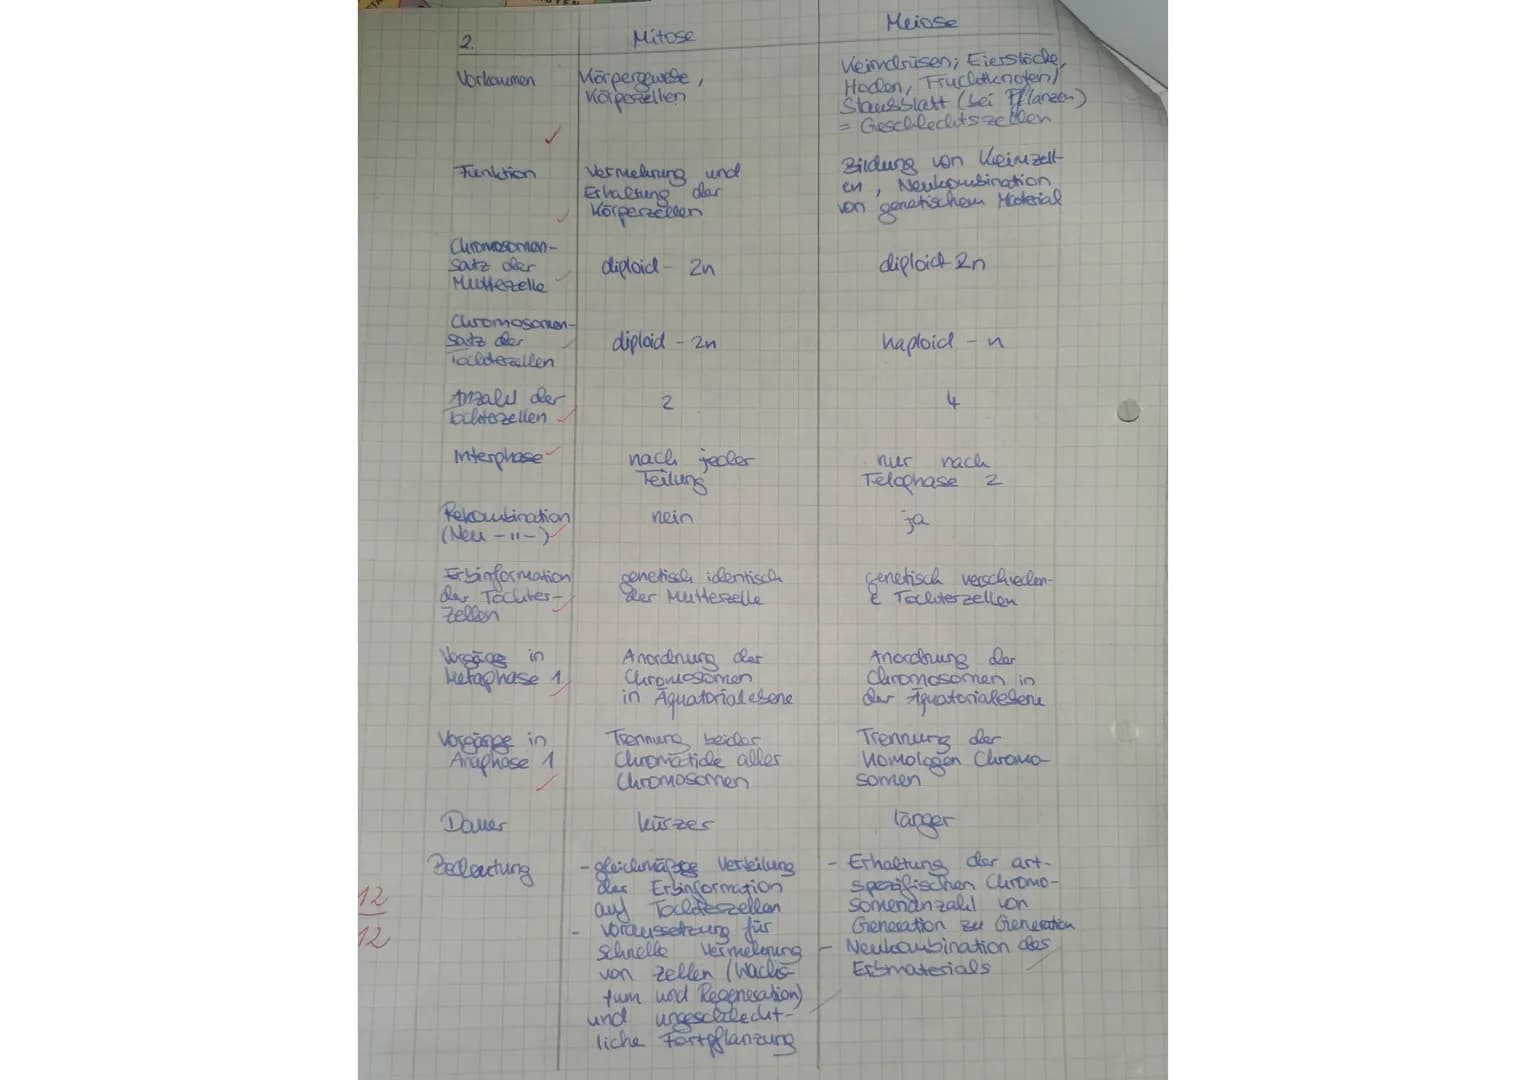 2.
Mitose
Meiose
Vorkommen
Körpergewebe,
Körperzellen
Keimdrüsen; Eierstöcke,
Hoden, Fruchtknoten/
Staubblatt (bei Pflanzen)
= Geschlechtszellen
Funktion
Vermehrung und
Erhaltung der
Körperzellen
Bildung von Keimzell-
en, Neukombination
von genetischem Material
Chromosomen-
satz der
Mutterzelle
diploid - 2n
diploid 2n
Chromosomen-
satz der
Tochterzellen
diploid - 2n
haploid - n
Anzahl der
Tochterzellen
2
4
Interphase
nach jeder
Teilung
nur nach
Telophase 2
Rekombination
(Neu -"-)
nein
ja
Erbinformation
der Tochter-
zellen
genetisch identisch
der Mutterzelle
genetisch verschieden-
e Tochterzellen
Vorgänge in
Metaphase 1
Anordnung der
Chromosomen
in Äquatorialebene
Anordnung der
Chromosomen in
der Äquatorialebene
Vorgänge in
Anaphase 1
Trennung beider
Chromatide aller
Chromosomen
Trennung der
homologen Chromo-
somen
Dauer
kürzer
länger
Bedeutung
- gleichmäßige Verteilung
der Erbinformation
auf Tochterzellen
- Voraussetzung für
schnelle Vermehrung
von Zellen (Wachs-
tum und Regeneration)
und ungeschlecht-
liche Fortpflanzung
- Erhaltung der art-
spezifischen Chromo-
somenanzahl von
Generation zu Generation
- Neukombination des
Erbmaterials
12
12